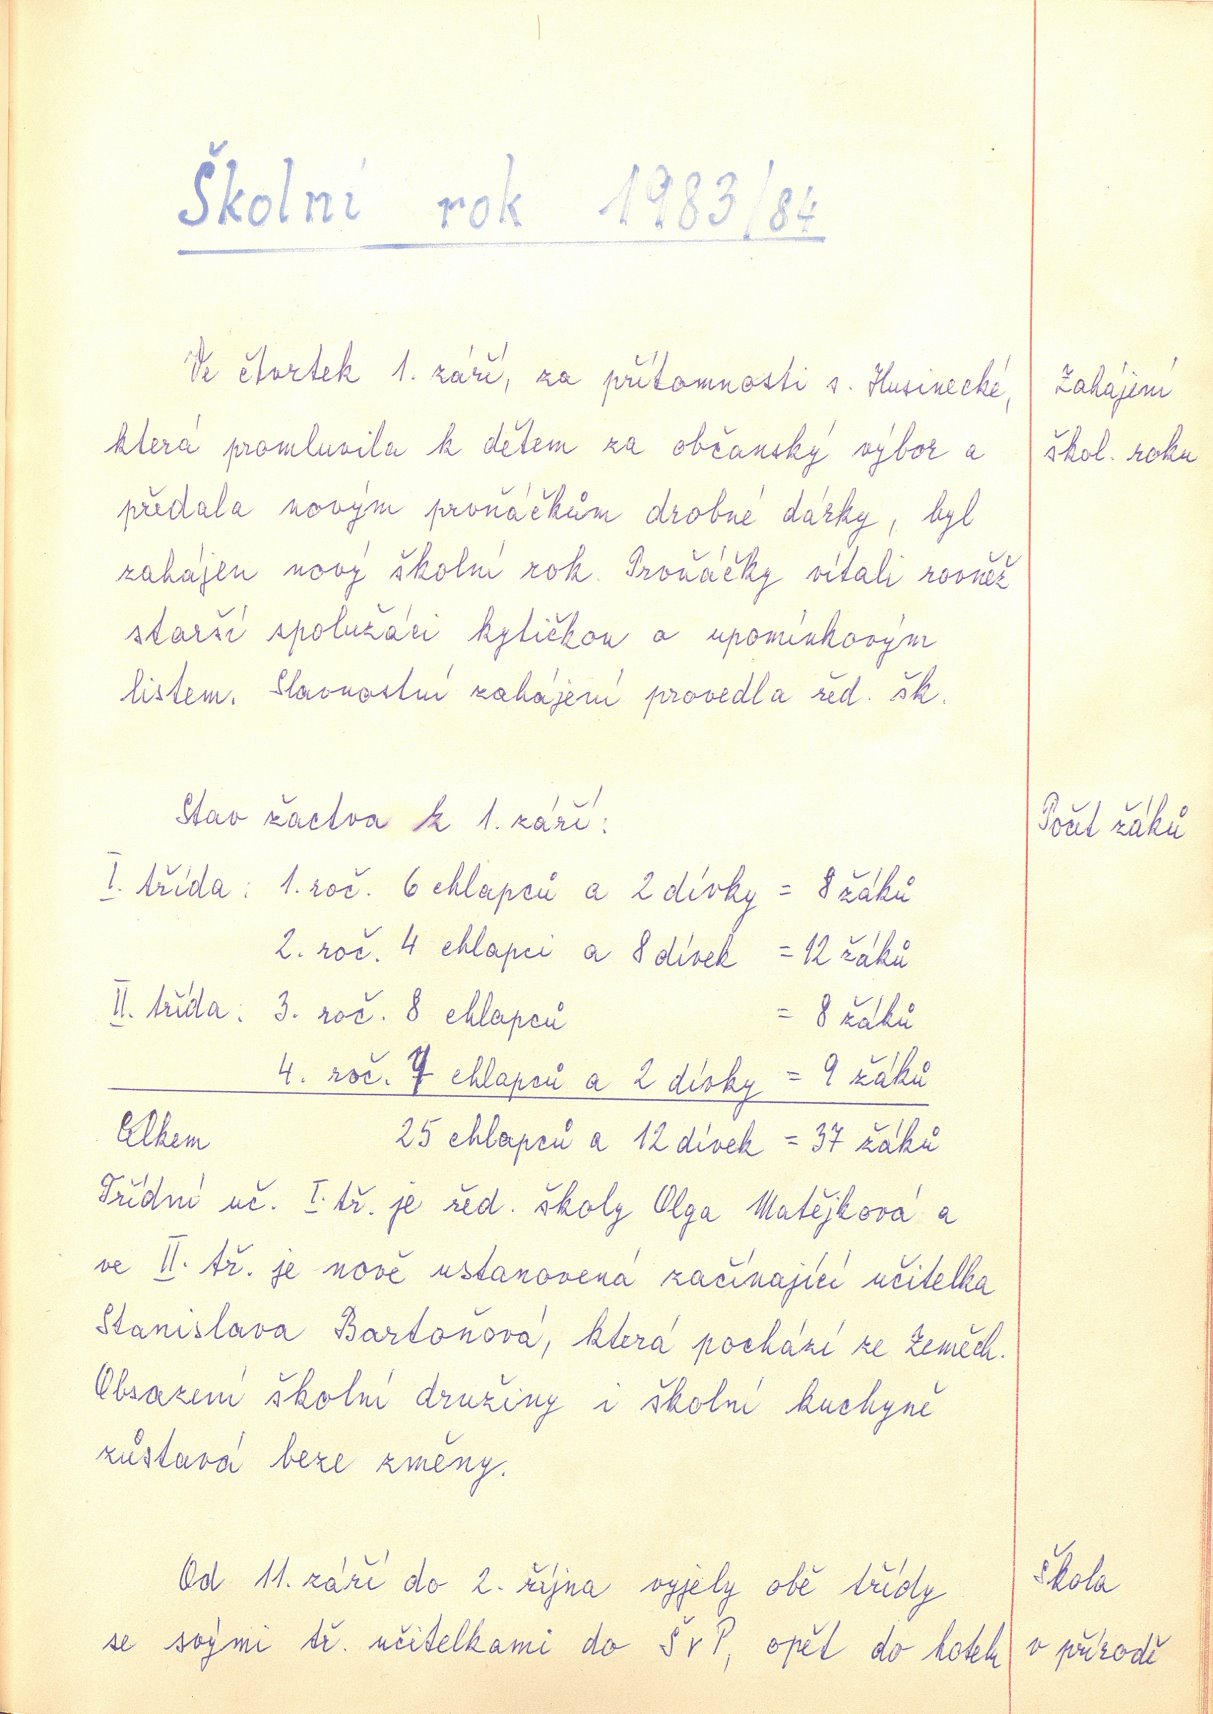 Školní rok 1983/84
Ve čtvrtek 1. září, za přítomnosti s. Husinecké,
Zahájení
která promluvila k dětem za občanský výbor a
škol. roku
předala novým prvňáčkům drobné dárky, byl
zahájen nový školní rok. Prvňáčky vítali rovněž
starší spolužáci kytičkou a upomínkovým
listem. Slavnostní zahájení provedla řed. šk.
Stav žactva k 1. září:
Počet žáků
I. třída: 1. roč. 6 chlapců a 2 dívky = 8 žáků
2. roč. 4 chlapci a 8 dívek = 12 žáků
II. třída: 3. roč. 8 chlapců = 8 žáků
4. roč. 7 chlapců a 2 dívky = 9 žáků
Celkem 25 chlapců a 12 dívek = 37 žáků
Třídní uč. I. tř. je řed. školy Olga Matějková a
ve II. tř. je nově ustanovená začínající učitelka
Stanislava Bartoňová, která pochází ze Žeměch.
Obsazení školní družiny i školní kuchyně
zůstavá beze změny.
Od 11. září do 2. října vyjely obě třídy
Škola
se svými tř. učitelkami do ŠvP, opět do hotelu
v přírodě